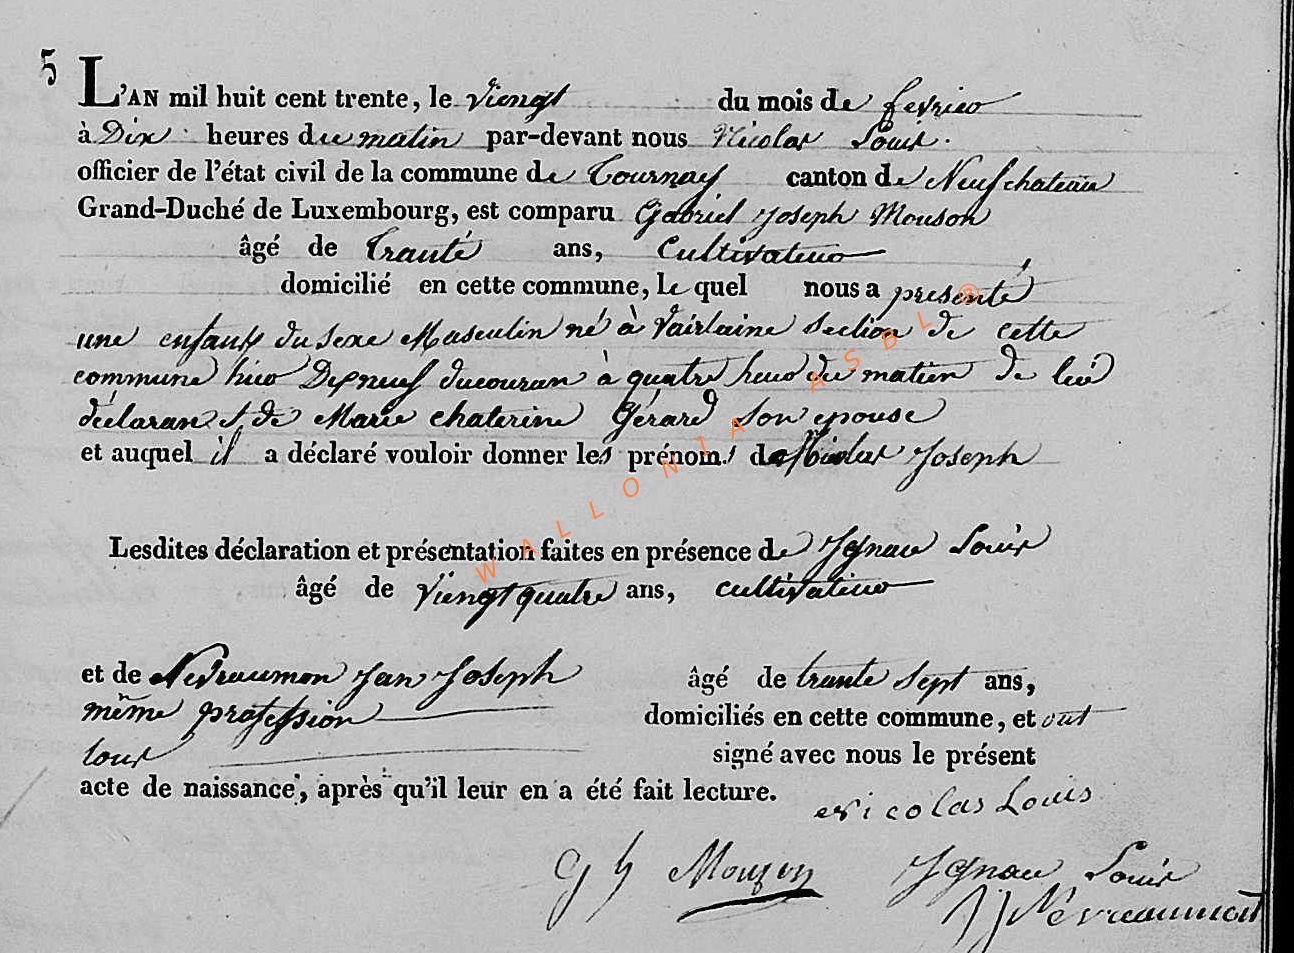 5
L'AN mil huit cent trente, le viengt du mois de fevrier
à Dix heures du matin par-devant nous Nicolas Louis
officier de l'état civil de la commune de Tournay canton de Neufchateau
Grand-Duché de Luxembourg, est comparu Gabriel Joseph Mouson
âgé de trante ans, Cultivateur
domicilié en cette commune, le quel nous a presenté
une enfant du sexe Masculin né à Vairlaine section de cette
commune hier Dixneuf ducouran à quatre heur du matien de lui
déclarant & de Marie Chaterine Gérard son epouse
et auquel il a déclaré vouloir donner les prénoms de Nicolas Joseph
Lesdites déclaration et présentation faites en présence de Ignace Louis
âgé de viengtquatre ans, cultivateur
et de Nevraumon Jan Joseph âgé de trante sept ans,
même profession domiciliés en cette commune, et ont
tous signé avec nous le présent
acte de naissance, après qu'il leur en a été fait lecture.
Nicolas Louis
G J Mouzon Ignace Louis
JJ Névraumont
WALLONIA ASBL ®